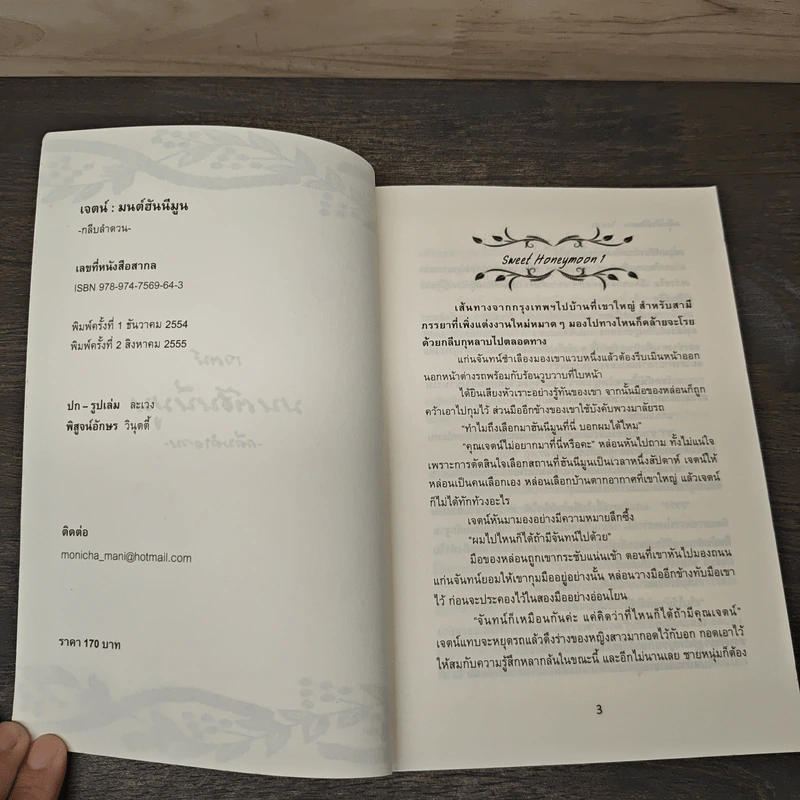 เจตน์ : มนต์ฮันนีมูน
-กลีบลำดวน-
เลขที่หนังสือสากล
ISBN 978-974-7569-64-3
พิมพ์ครั้งที่ 1 ธันวาคม 2554
พิมพ์ครั้งที่ 2 สิงหาคม 2555
ปก – รูปเล่ม ละเวง
พิสูจน์อักษร วินุตตี้
ติดต่อ
monicha_mani@hotmail.com
ราคา 170 บาท
Sweet Honeymoon 1
เส้นทางจากกรุงเทพฯไปบ้านที่เขาใหญ่ สำหรับสามี
ภรรยาที่เพิ่งแต่งงานใหม่หมาดๆ มองไปทางไหนก็คล้ายจะโรย
ด้วยกลีบกุหลาบไปตลอดทาง
แก่นจันทน์ชำเลืองมองเขาแวบหนึ่งแล้วต้องรีบเมินหน้าออก
นอกหน้าต่างรถพร้อมกับร้อนวูบวาบที่ใบหน้า
ได้ยินเสียงหัวเราะอย่างรู้ทันของเขา จากนั้นมือของหล่อนก็ถูก
คว้าเอาไปกุมไว้ ส่วนมืออีกข้างของเขาใช้บังคับพวงมาลัยรถ
“ทำไมถึงเลือกมาฮันนีมูนที่นี่ บอกผมได้ไหม”
“คุณเจตน์ไม่อยากมาที่นี่หรือคะ” หล่อนหันไปถาม ทั้งไม่แน่ใจ
เพราะการตัดสินใจเลือกสถานที่ฮันนีมูนเป็นเวลาหนึ่งสัปดาห์ เจตน์ให้
หล่อนเป็นคนเลือกเอง หล่อนเลือกบ้านตากอากาศที่เขาใหญ่ แล้วเจตน์
ก็ไม่ได้ทักท้วงอะไร
เจตน์หันมามองอย่างมีความหมายลึกซึ้ง
“ผมไปไหนก็ได้ถ้ามีจันทน์ไปด้วย”
มือของหล่อนถูกเขากระชับแน่นเข้า ตอนที่เขาหันไปมองถนน
แก่นจันทน์ยอมให้เขากุมมืออยู่อย่างนั้น หล่อนวางมืออีกข้างทับมือเขา
ไว้ ก่อนจะประคองไว้ในสองมืออย่างอ่อนโยน
“จันทน์ก็เหมือนกันค่ะ แค่คิดว่าที่ไหนก็ได้ถ้ามีคุณเจตน์”
เจตน์แทบจะหยุดรถแล้วดึงร่างของหญิงสาวมากอดไว้กับอก กอดเอาไว้
ให้สมกับความรู้สึกหลากล้นในขณะนี้ และอีกไม่นานเลย ชายหนุ่มก็ต้อง
3